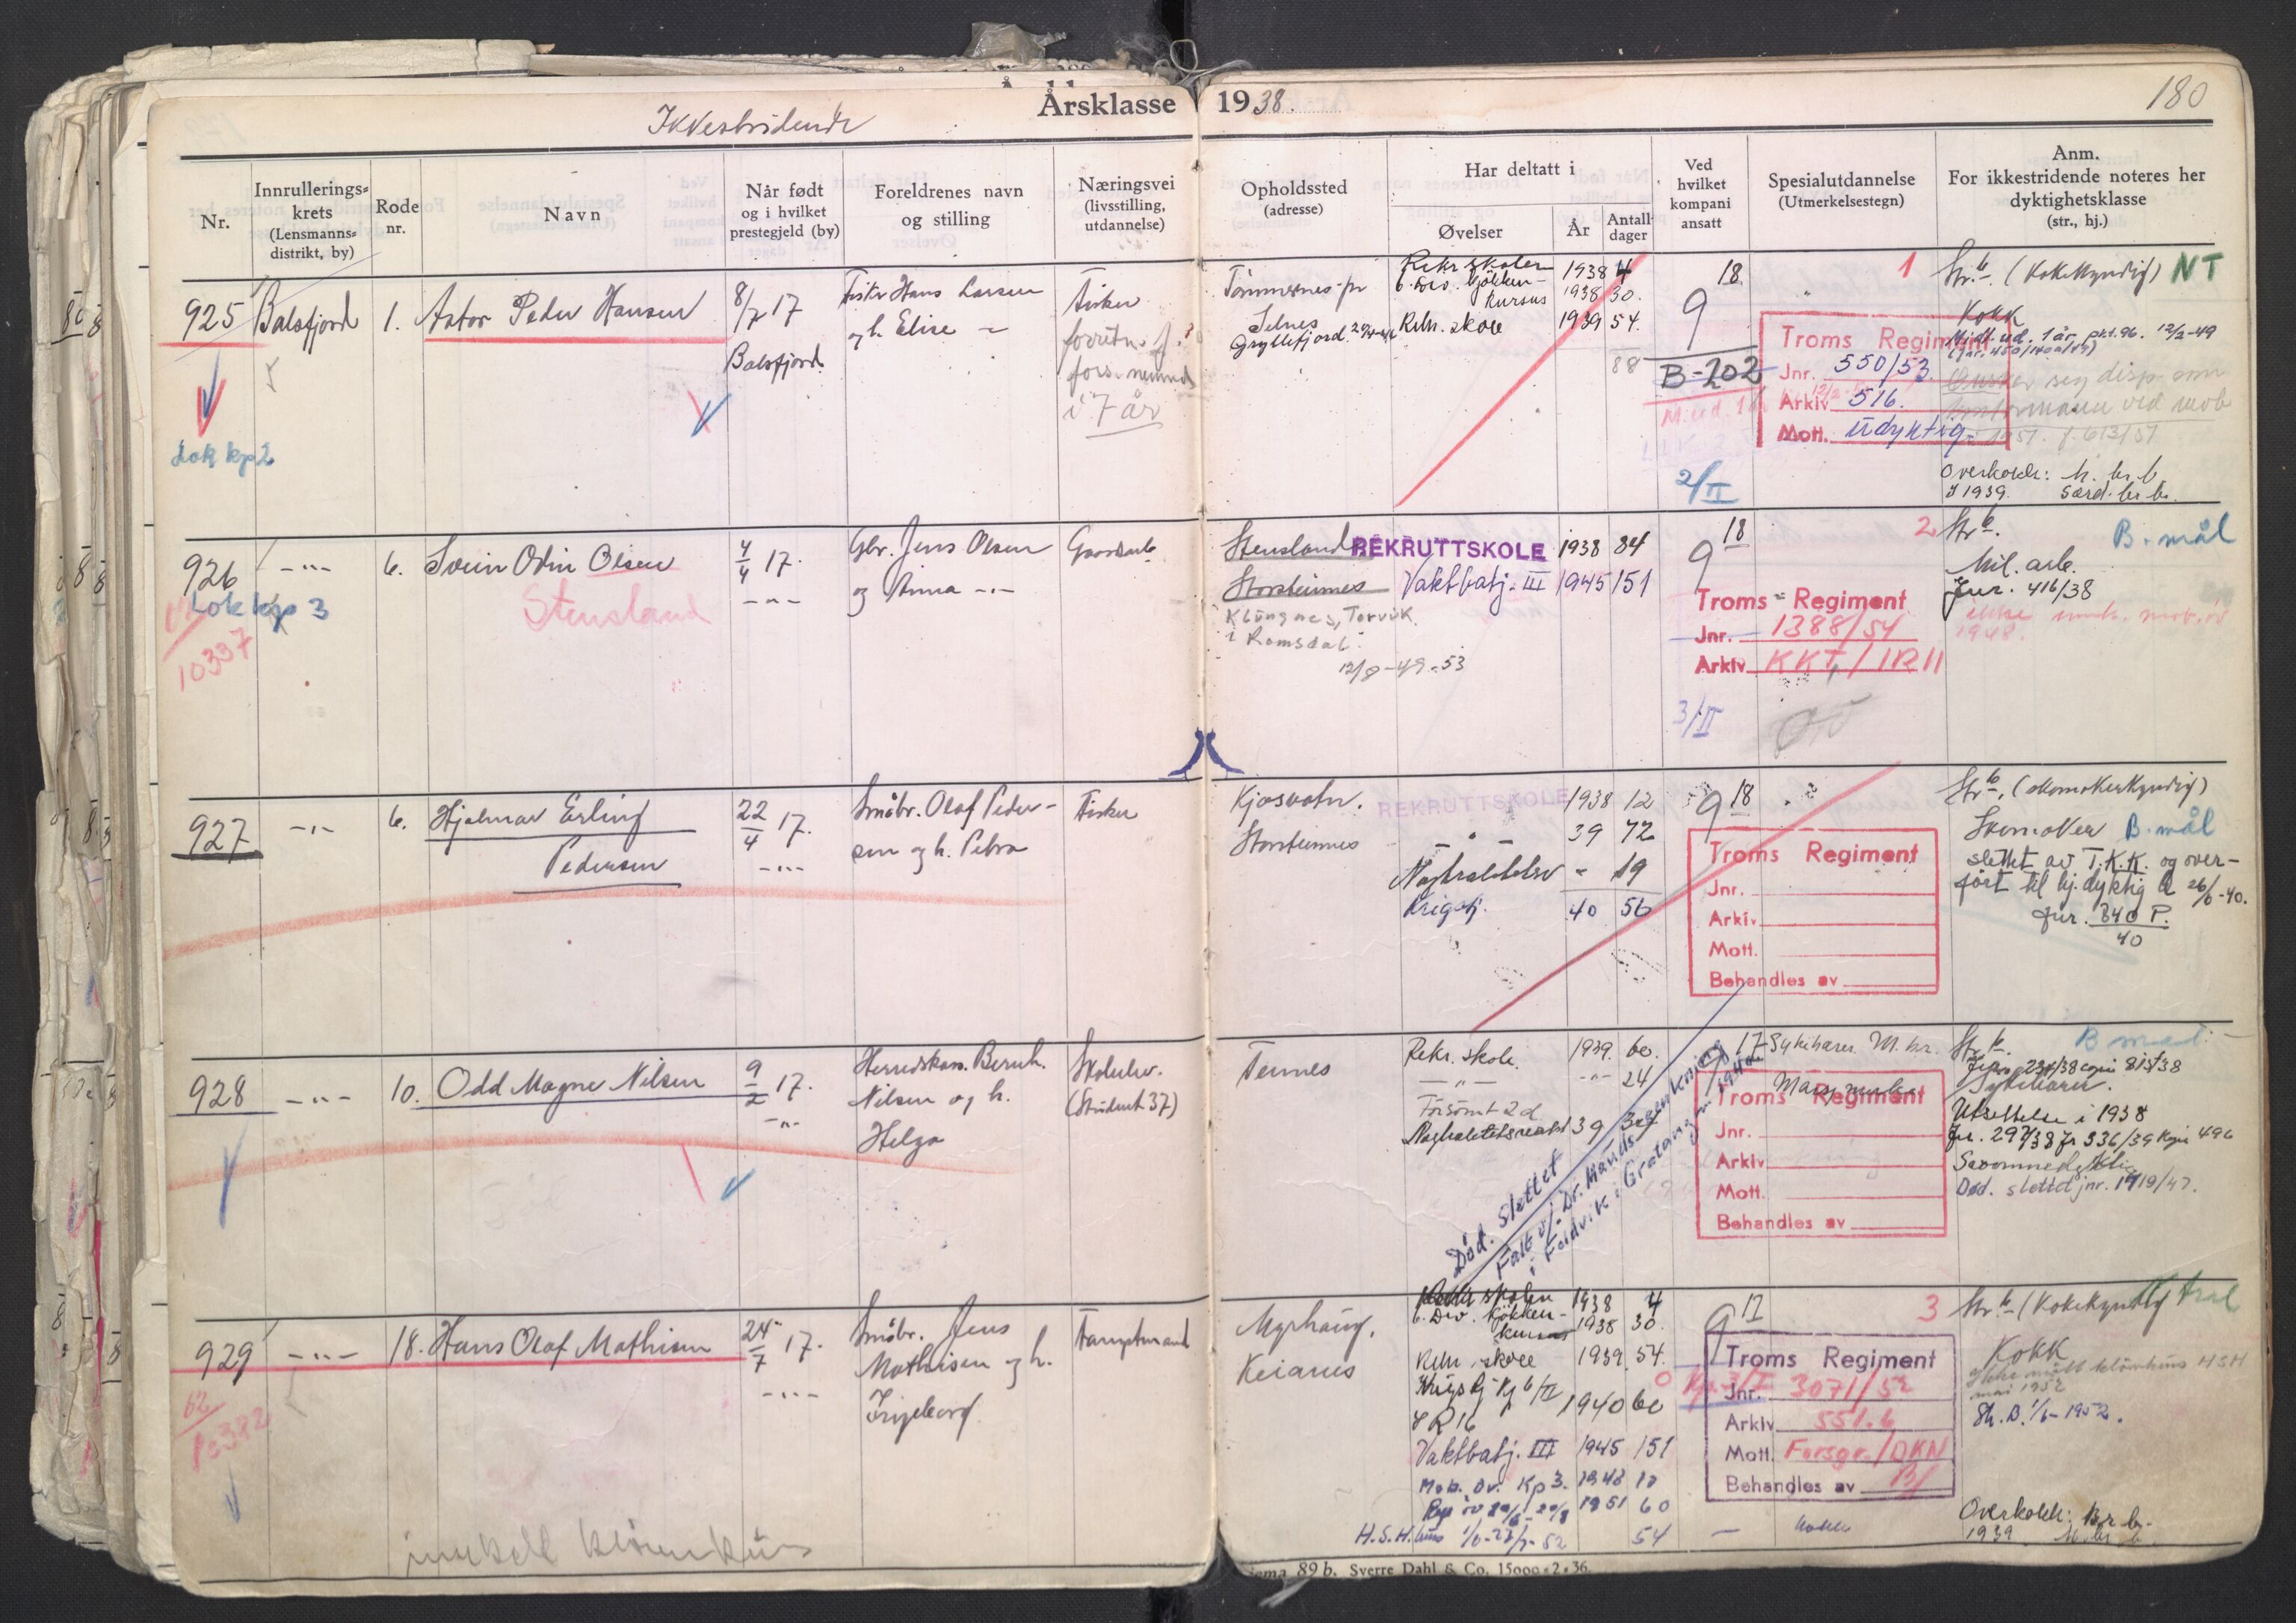 180
Ikkestridende
Årsklasse 1938.
Nr.
Innrullerings-
krets
(Lensmanns-
distrikt, by)
Rode
nr.
Navn
Når født
og i hvilket
prestegjeld (by)
Foreldrenes navn
og stilling
Næringsvei
(livsstilling,
utdannelse)
Opholdssted
(adresse)
Har deltatt i
Øvelser
År
Antall
dager
Ved
hvilket
kompani
ansatt
Spesialutdannelse
(Utmerkelsestegn)
Anm.
For ikkestridende noteres her
dyktighetsklasse
(str., hj.)
925 Balsfjord 1. Astor Peder Hansen
8/7 17
Balsfjord
Fisker Hans Larsen
og h. Elise
Fisker
i 7 år
Tømmernes
Selnes
Gryllefjord
Rekr. skolen 1938 4
6. Div. kjøkken-
kursus 1938 30.
Rekr. skole 1939 54.
88
18
9
B-202
2/II
1
Troms Regiment
Jnr. 550/53
Arkiv 516.
Mott. Udyktig
Str. b (Kokekyndig) NT
Kokk
Overkokk: M. br. b
I 1939. Særd. br. b.
Lok kp 2
926 -"- 6. Svein Odin Olsen
Stensland
4/4 17.
-"-
Gbr. Jens Olsen
og Anna -"-
Gaardsarb.
Stensland
Storsteinnes
Klungnes, Torvik
i Romsdal.
12/8-49-53
REKRUTTSKOLE 1938 84
Vaktbatj. III 1945 151
18
9
3/II
Troms Regiment
Jnr. 1388/54
Arkiv KKT/IR11
2. Str. b.
B. mål
Mil. arb.
Jnr. 416/38
1948.
Lok kp 3
10397
927 -"- 6. Hjalmar Erling
Pedersen
22/4 17.
-"-
Småbr. Olaf Peder-
sen og h. Petra
Fisker
Kjosvatn.
Storsteinnes
REKRUTTSKOLE 1938 12
39 72
Nøytralitetsv - 19
Krigstj. 40 56
9 18
Troms Regiment
Jnr.
Arkiv
Mott.
Behandles av
Str. b. (skomakerkyndig)
Skomaker B. mål
slettet av T.K.K. og over-
ført til hj.dyktig b 26/6-40.
Jnr. 840 P.
40
928 -"- 10. Odd Magne Nilsen
9/2 17.
-"-
Herredskass. Bernh.
Nilsen og h.
Helga
Skoleelev.
(Student 37)
Tennes
Rekr. skole. 1939. 60.
-"- -"- 24
Forsømt 2 d
Nøytralitetsvakt 39
Død. Slettet
Falt v/ Dr. Mands
i Foldvik i Gratangen
17 Sykebærer M. br.
Troms Regiment
Jnr.
Arkiv
Mott.
Behandles av
Str. b. B mål.
Sykebærer.
Utsettelse i 1938
Jnr. 297/38 Jr 336/39 Kopi 496
Død. slettet jnr. 1419/47.
929 -"- 18. Hans Olaf Mathisen
24/7 17.
-"-
Småbr. Jens
Mathisen og h.
Ingeborg
Fangstmand
Myrhaug.
Keianes
Rekr skolen 1938 4
6. Div. kjøkken-
kursus 1938 30.
Rekr. skole 1939. 54.
Krigstj. Kp 6/II
IR 16 1940 60
Vaktbatj. III 1945 151
Mob. øv. Kp 3. 1948 10
Rep øv 20/6-20/8 1951 60
H.S.H. kurs 1/6-23/7-52 54 - kokk
9 17
3
Troms Regiment
Jnr. 3071/52
Arkiv 551.6
Mott. Forsgr./DKN
Behandles av
Str. b (Kokekyndig)
Kokk
mai 1952
Sk. B. 1/6-1952.
Overkokk: Br. b.
1939
62
10382
89 b. Sverre Dahl & Co. 15000-2-36.